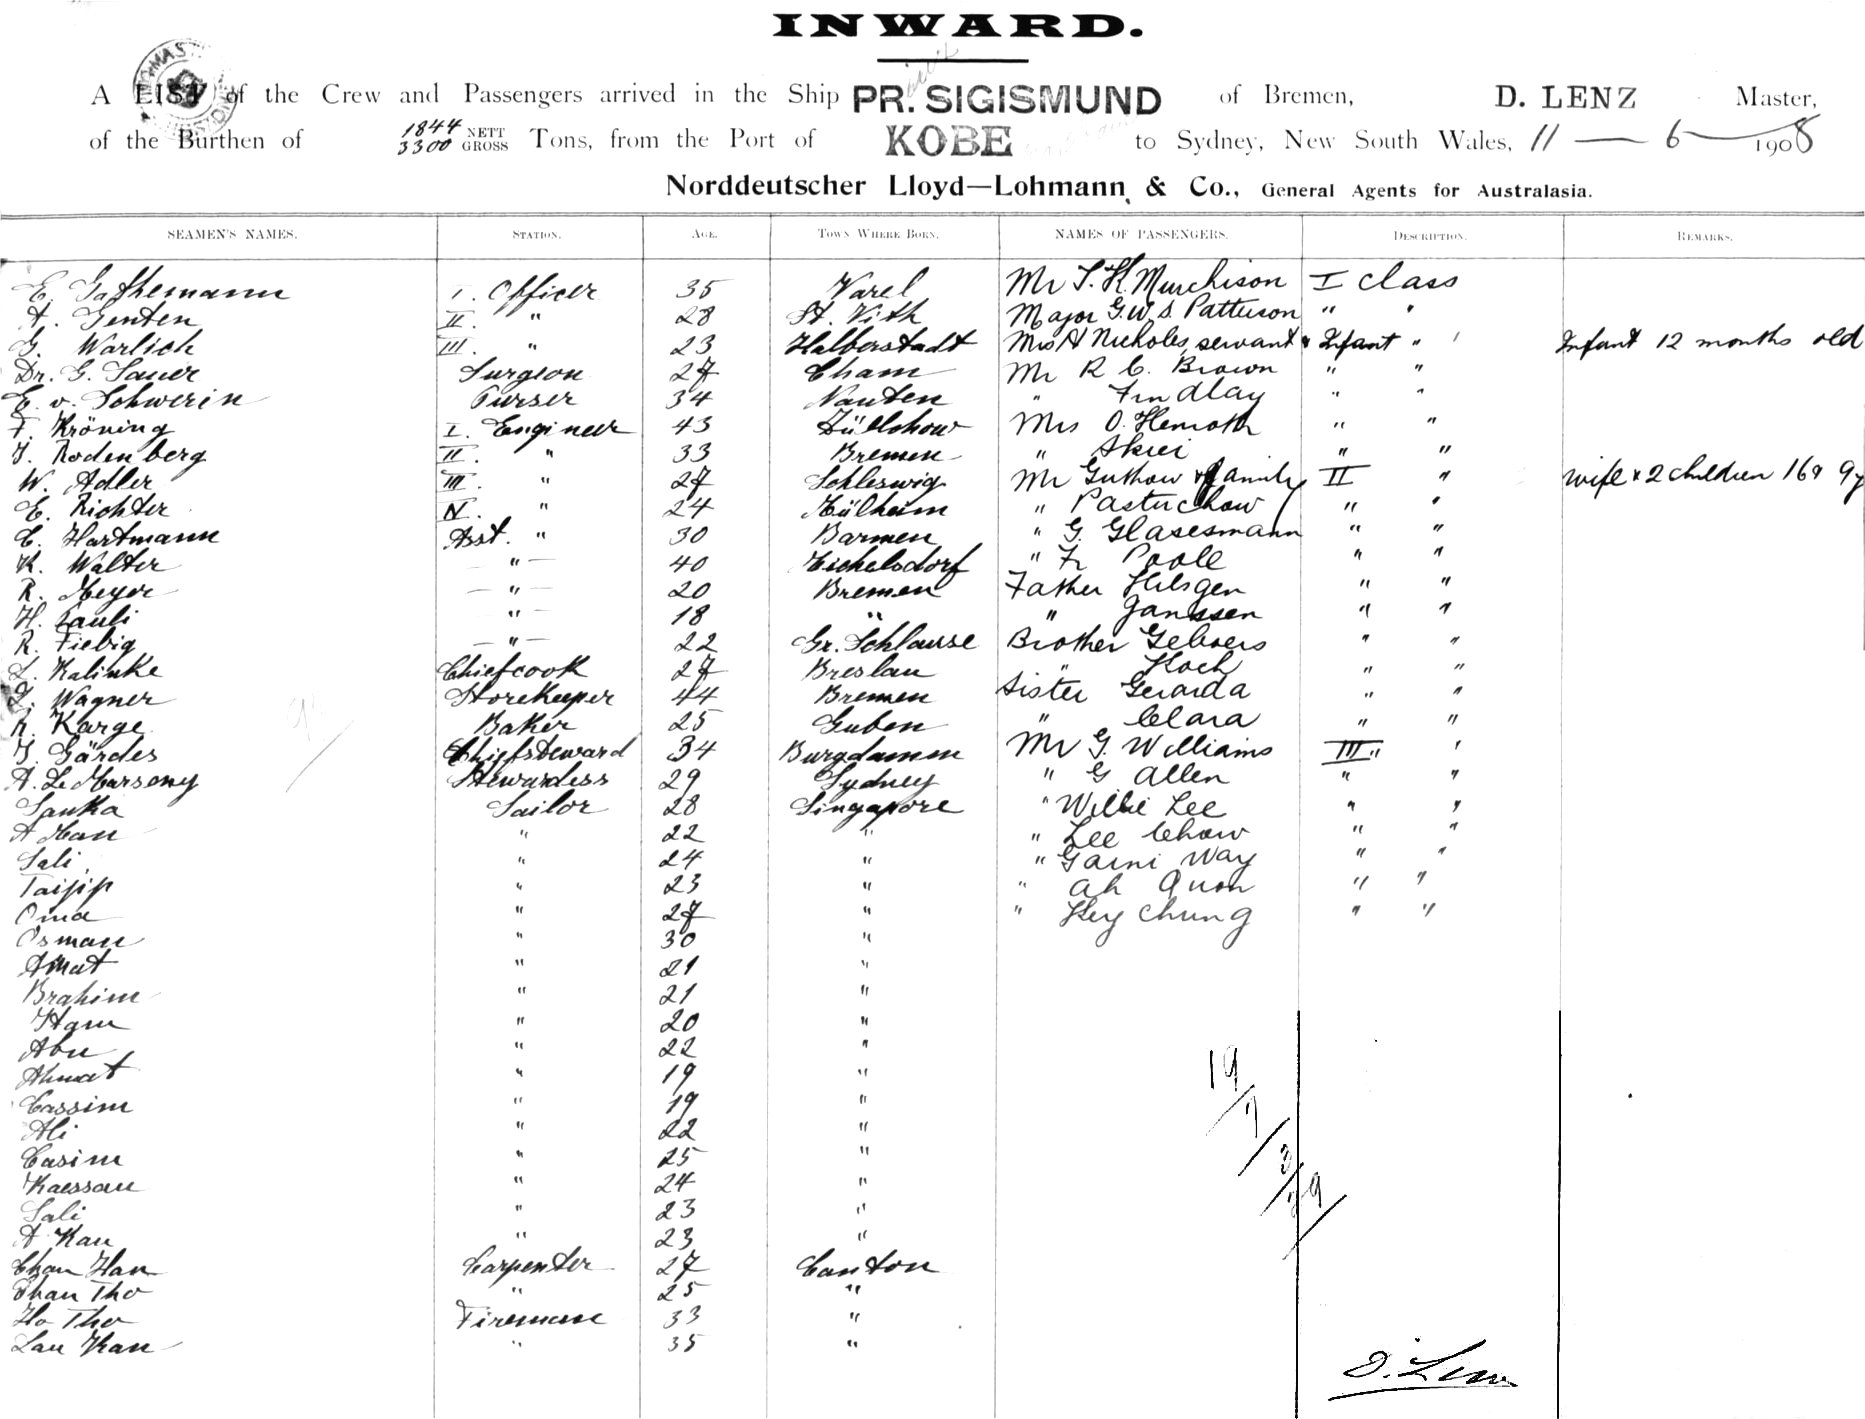 INWARD.
A LIST of the Crew and Passengers arrived in the Ship PR. SIGISMUND of Bremen, D. LENZ Master,
of the Burthen of 1844 NETT 3300 GROSS Tons, from the Port of KOBE to Sydney, New South Wales, 11 — 6 — 1908
Norddeutscher Lloyd—Lohmann & Co., General Agents for Australasia.
SEAMEN'S NAMES. STATION. AGE. TOWN WHERE BORN. NAMES OF PASSENGERS. DESCRIPTION. REMARKS.
E. Gathemann I. Officer 35 Varel Mr T. H. Murchison I class
A. Genten II. " 28 St. Vith Major G. W. S. Patterson " "
G. Warlich III. " 23 Halberstadt Mrs A Nicholes, servant & Infant " " Infant 12 months old
Dr. G. Sauer Surgeon 27 Cham Mr R C. Brown " "
E. v. Schwerin Purser 34 Nauten " Findlay " "
F. Kröning I. Engineer 43 Züllchow Mrs O. Hemroth " "
J. Rodenberg II. " 33 Bremen " Skiei " "
W. Adler III. " 27 Schleswig Mr Guthow & family II " wife & 2 children 16 & 9 y
E. Richter IV. " 24 Mülheim " Pastuchow " "
C. Hartmann Asst. " 30 Barmen " G. Glasesmann " "
K. Walter " 40 Eichelsdorf " Fr Poole " "
R. Meyer " 20 Bremen Father Hilsgen " "
H. Pauli " 18 " " Janssen " "
R. Fiebig " 22 Gr. Schlause Brother Geboers " "
L. Kalinke Chiefcook 27 Breslau " Koch " "
L. Wagner Storekeeper 44 Bremen Sister Gerarda " "
R. Karge Baker 25 Guben " Clara " "
J. Gärdes Chiefsteward 34 Burgdamm Mr G. Williams III " "
A. Le Marseny Stewardess 29 Sydney " G Allen " "
Sauka Sailor 28 Singapore " Willie Lee " "
A Man " 22 " " Lee Chow " "
Sali " 24 " " Garni Way " "
Taijip " 23 " " Ah Quon " "
Oma " 27 " " Hey Chung " "
Osman " 30 "
Amat " 21 "
Brahim " 21 "
Ham " 20 "
Abu " 22 "
Ahmat " 19 "
Cassim " 19 "
Ali " 22 "
Casim " 25 "
Kaessan " 24 "
Sali " 23 "
A Kau " 23 "
Chau Han Carpenter 27 Canton
Chan Tho " 25 "
Ho Tho Fireman 33 "
Lau Kan " 35 "
19
7
3
29
D. Lenz